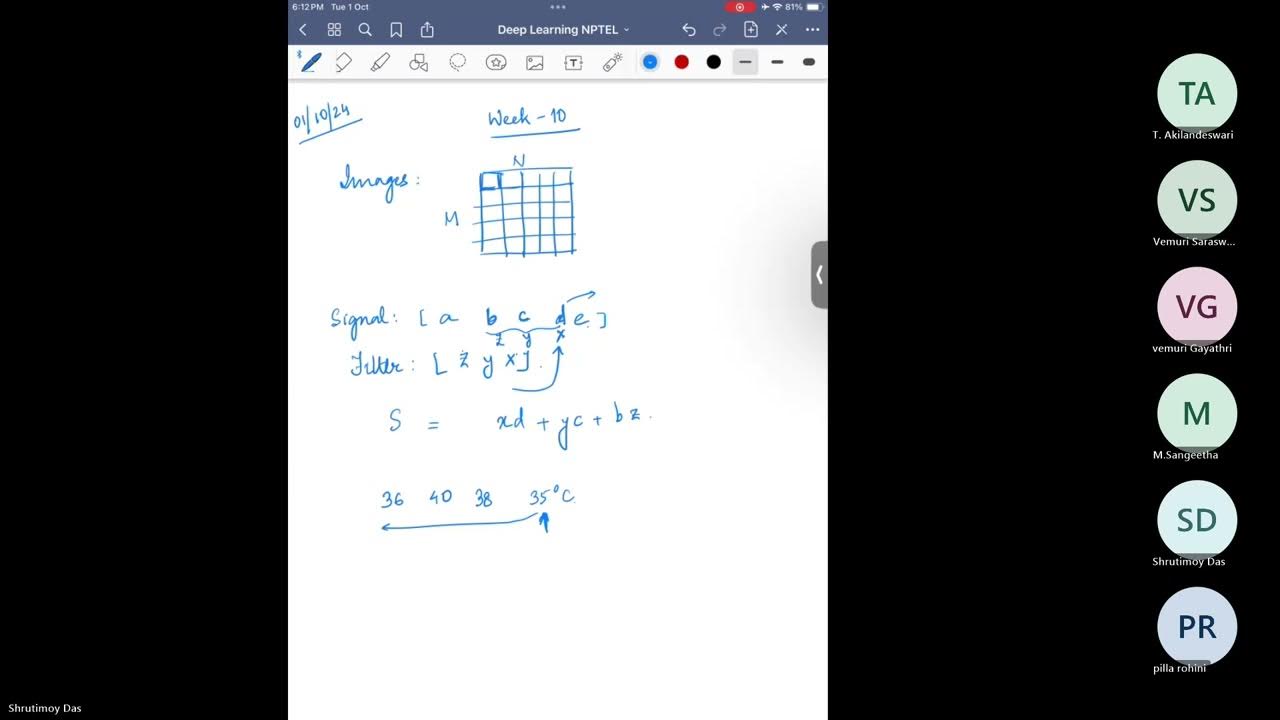 6:12 PM Tue 1 Oct
81%
Deep Learning NPTEL
01/10/24
Week - 10
Images:
N
M
Signal: [ a b c d e ]
z y x
Filter: [ z y x ]
S = xd + yc + bz.
36 40 38 35°C
TA
T. Akilandeswari
VS
Vemuri Sarasw...
VG
vemuri Gayathri
M
M.Sangeetha
SD
Shrutimoy Das
PR
pilla rohini
Shrutimoy Das